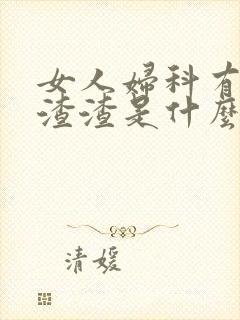 女人婦科有
渣渣是什麼
清媛